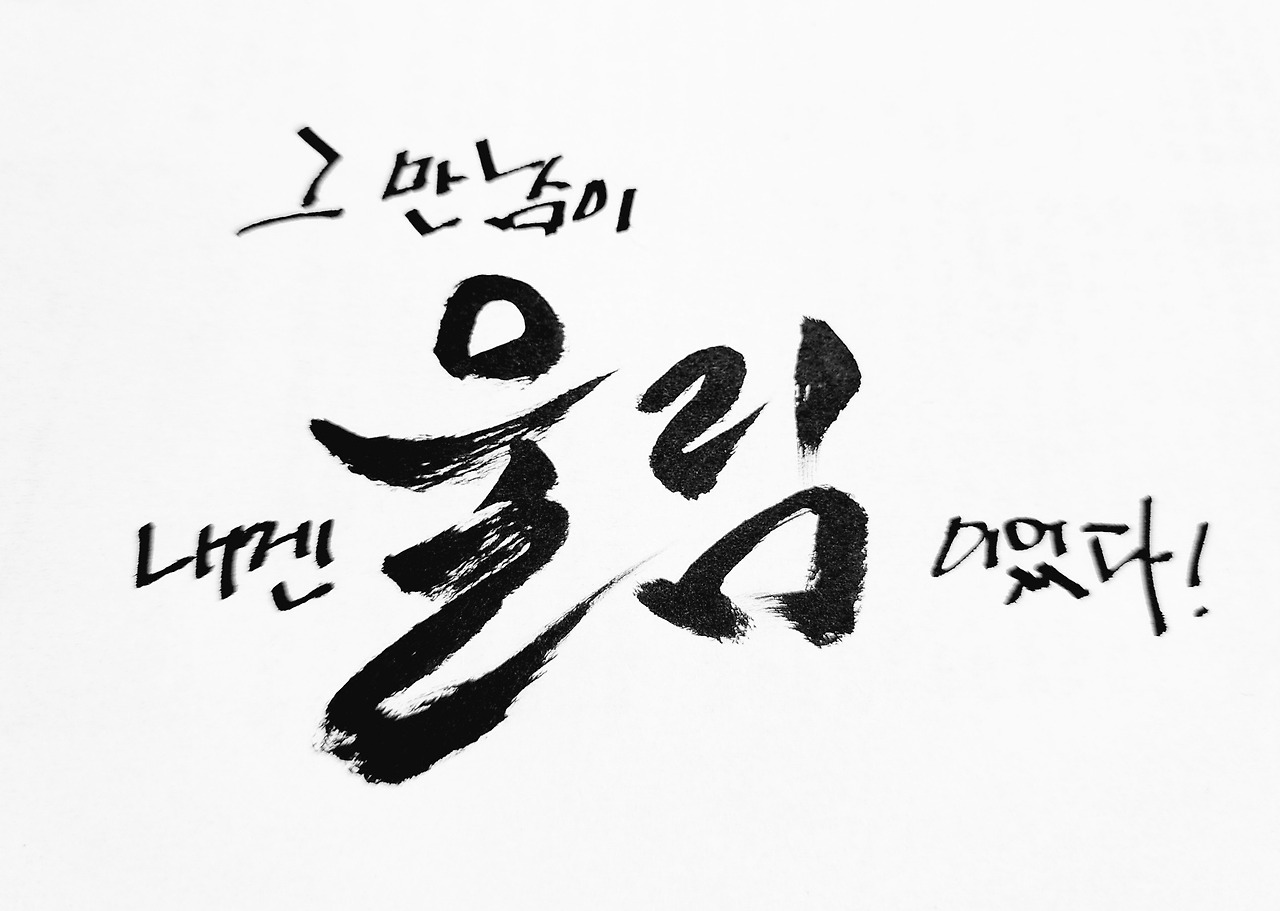 그 만남이
내겐 울림 이었다!